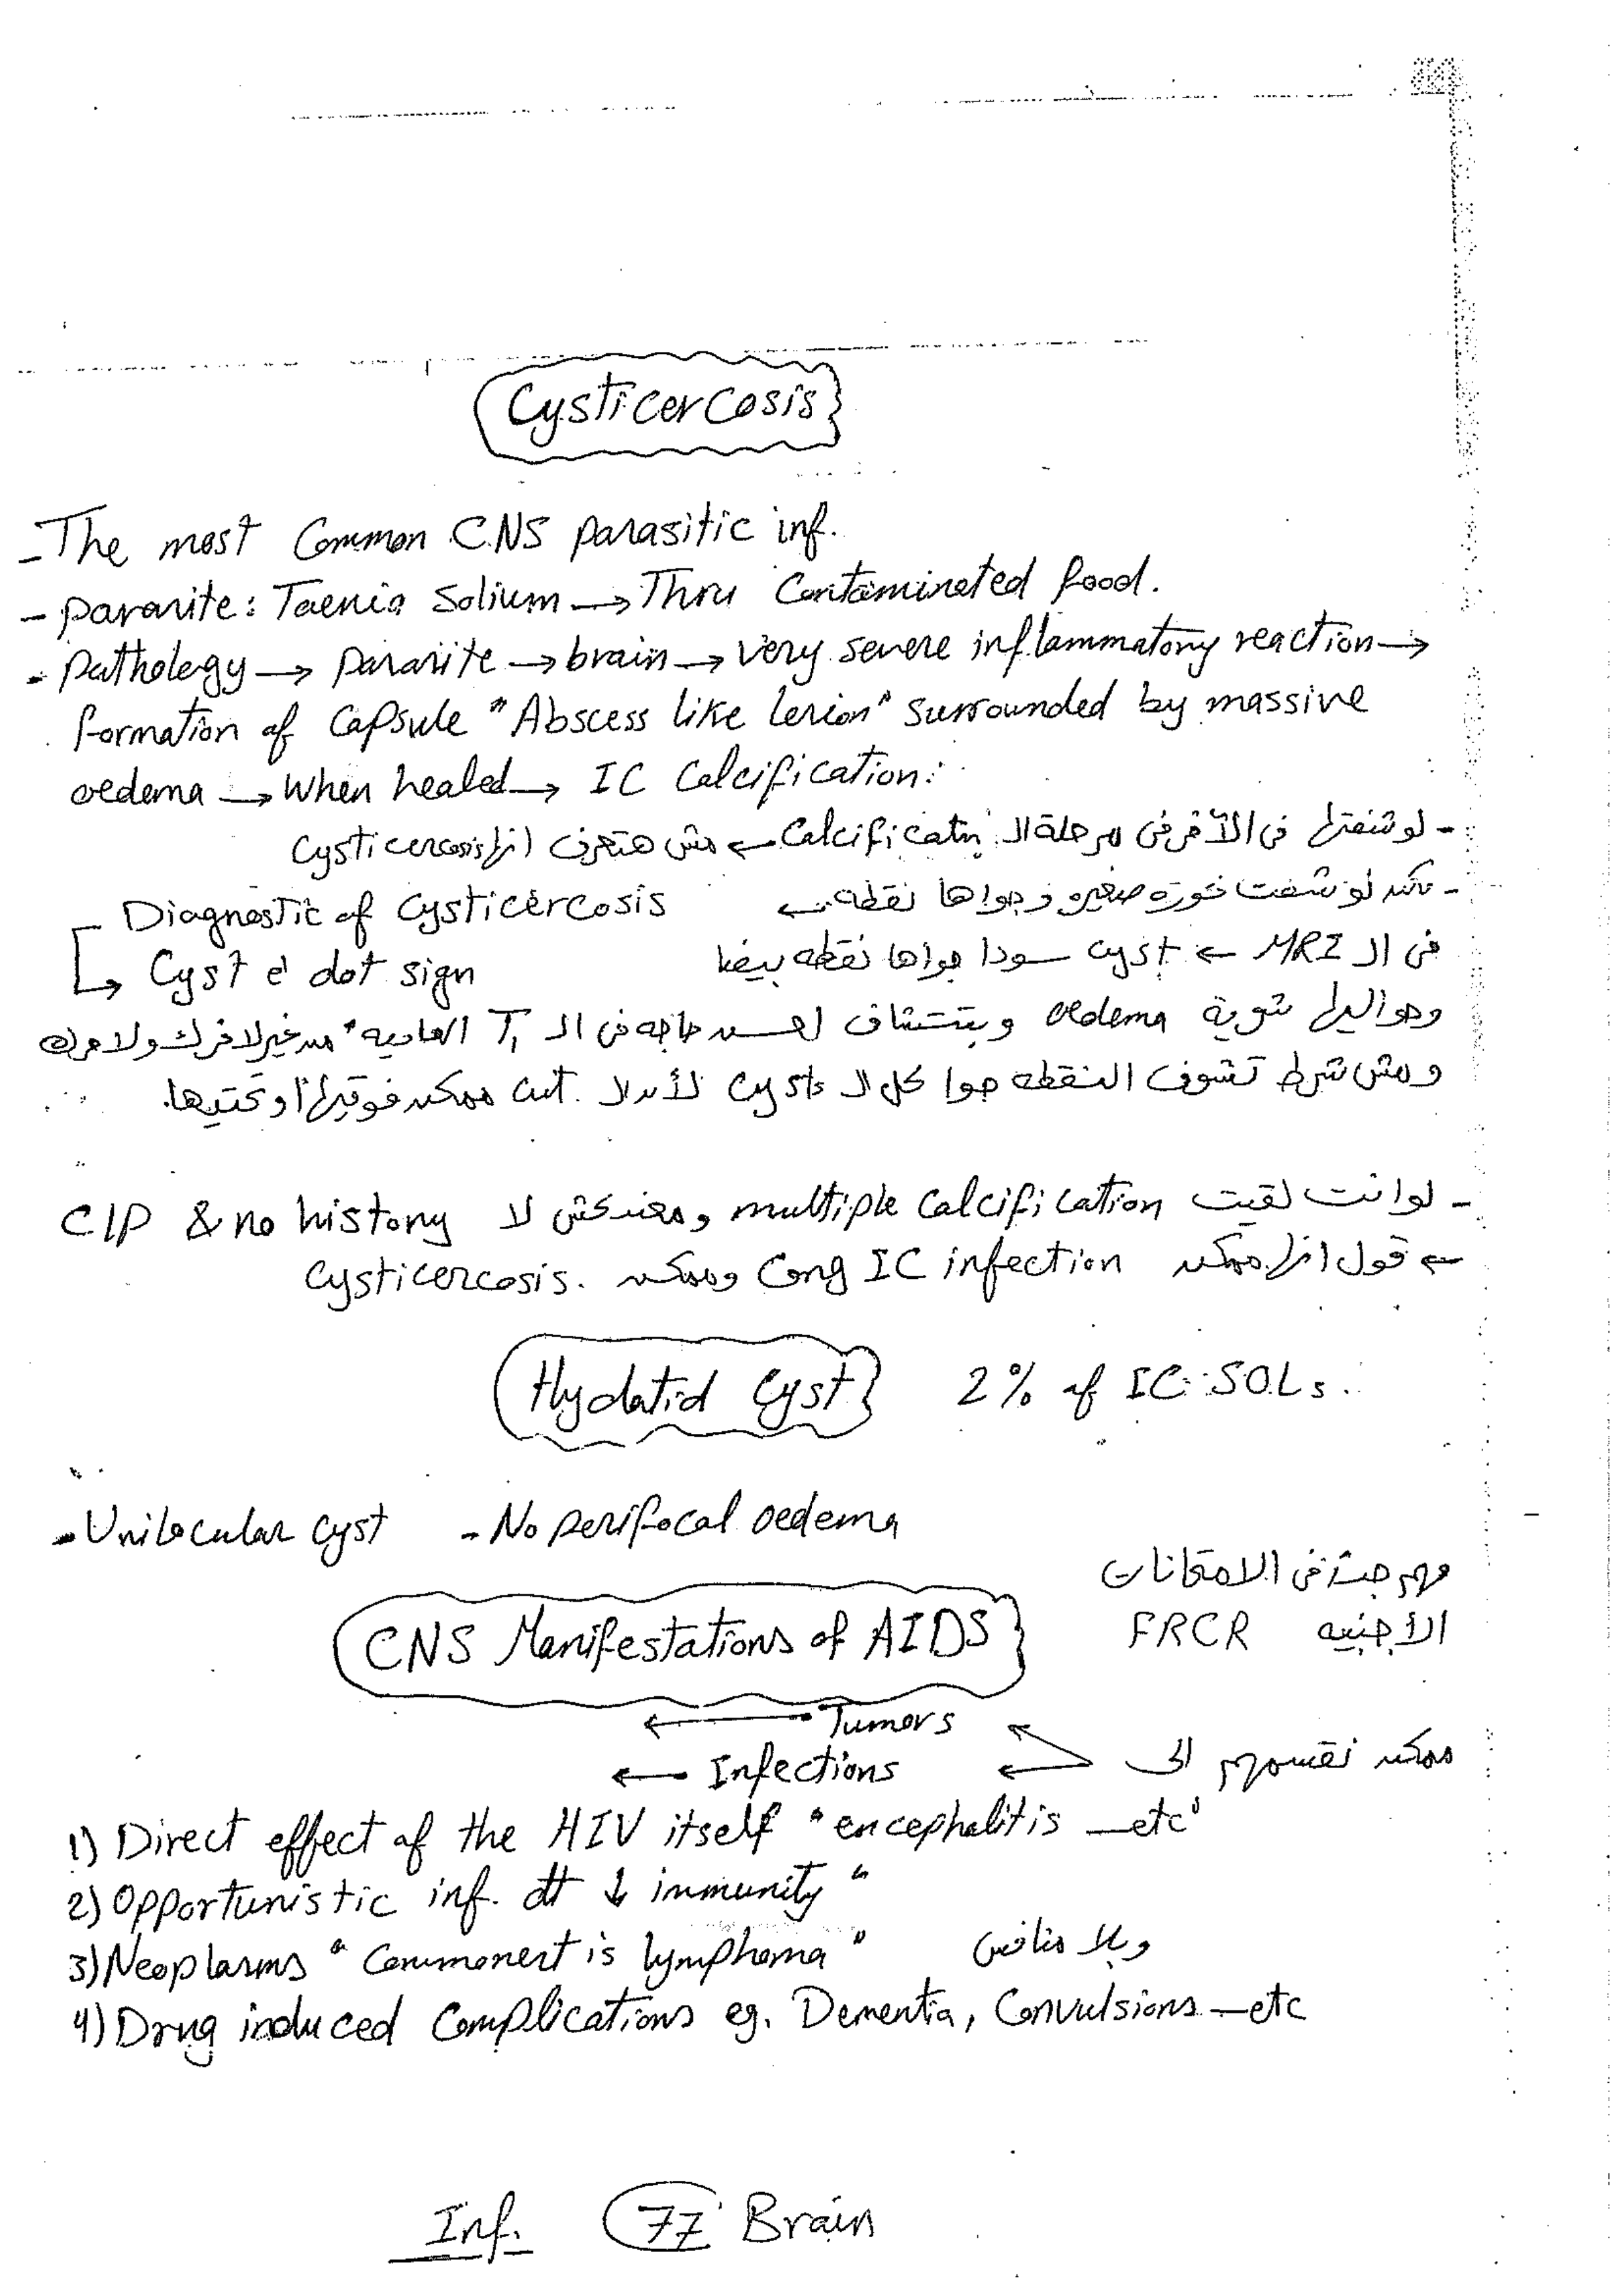 Cysticercosis
- The most Common CNS parasitic inf.
- parasite: Taenia Solium → Thru Contaminated food.
- pathology → parasite → brain → very severe inflammatory reaction →
formation of Capsule "Abscess like lesion" surrounded by massive
oedema → When healed → IC Calcification:
- لو شفتها فى الآخر فى مرحلة الـ Calcificatn ← مش هتعرف انها Cysticercosis
- لكن لو شفت خورة صغيره وجواها نقطه ←
Diagnostic of Cysticercosis
→ Cyst c̄ dot sign
فى الـ MRI ← cyst سودا جواها نقطه بيضا
وحواليها شوية oedema وبتتشاف احسن حاجه فى الـ T1 العاديه " من غير لا فرك ولا حرك
ومش شرط تشوف النقطه جوا كل الـ cysts لأن الـ cut ممكن فوقيها أو تحتيها.
- لو انت لقيت multiple Calcification ومعندكش لا C/P & no history
← قول انها ممكن Cong IC infection وممكن Cysticercosis.
Hydatid Cyst 2% of IC SOLs.
- Unilocular cyst - No perifocal oedema
مهم جدا فى الامتحانات
الأجنبيه FRCR
CNS Manifestations of AIDS
ممكن نقسمهم الى
← Tumors
← Infections
1) Direct effect of the HIV itself "encephalitis —etc"
2) Opportunistic inf. dt ↓ immunity "
3) Neoplasms "Commonest is lymphoma" وبلا منافس
4) Drug induced Complications eg. Dementia, Convulsions —etc
Inf. 77 Brain